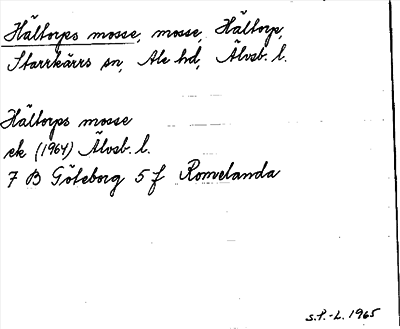 Hältorps mosse, mosse, Hältorp,
Starrkärrs sn, Ale hd, Älvsb. l.
Hältorps mosse
ek (1964) Älvsb. l.
7 B Göteborg 5 f Romelanda
S.P.-L. 1965